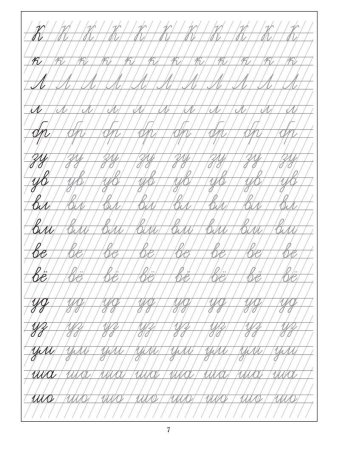 К К К К К К К К К К К
к к к к к к к к к к к
Л Л Л Л Л Л Л Л Л Л Л
л л л л л л л л л л л
бр бр бр бр бр бр бр бр
зу зу зу зу зу зу зу зу
ув ув ув ув ув ув ув ув
вл вл вл вл вл вл вл вл
вм вм вм вм вм вм вм вм
ве ве ве ве ве ве ве ве
вё вё вё вё вё вё вё вё
уд уд уд уд уд уд уд уд
уз уз уз уз уз уз уз уз
ум ум ум ум ум ум ум ум
ша ша ша ша ша ша ша ша
шо шо шо шо шо шо шо шо
7